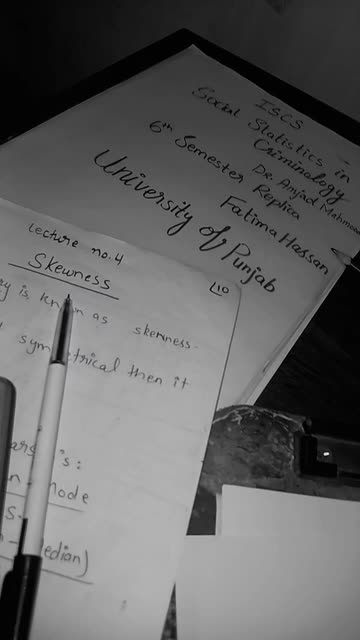 ISCS
Social Statistics in
Criminology
Dr. Amjad Mahmood
6th Semester Replica
Fatima Hassan
University of Punjab
Lecture no. 4
L10
Skewness
is known as skewness.
symmetrical then it
's:
Mode
Median)